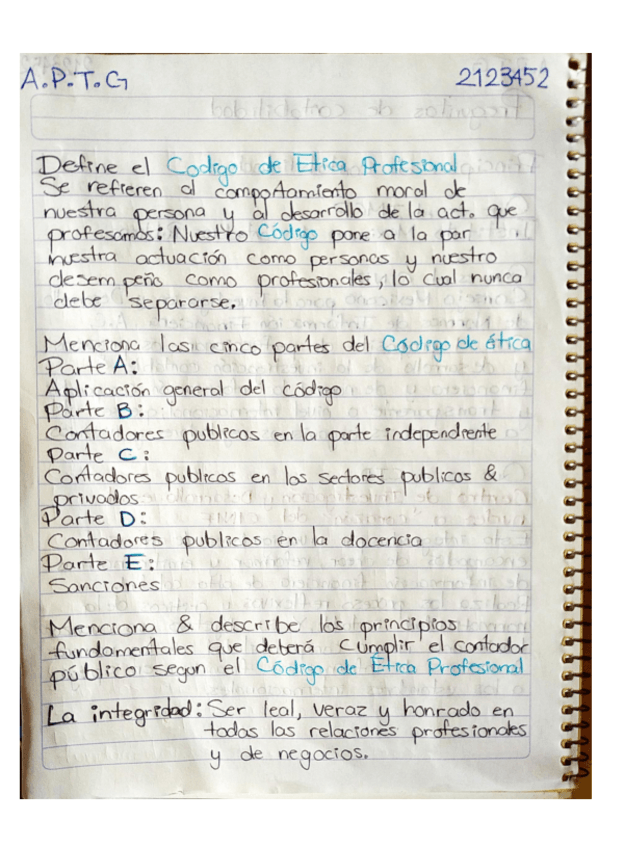 A.P.T.G 2123452
Define el Codigo de Etica Profesional
Se refieren al comportamiento moral de
nuestra persona y al desarrollo de la act. que
profesamos: Nuestro Código pone a la par
nuestra actuación como personas y nuestro
desempeño como profesionales, lo cual nunca
debe separarse.
Menciona las cinco partes del Código de ética
Parte A:
Aplicación general del código
Parte B:
Contadores publicos en la parte independiente
Parte C:
Contadores publicos en los sectores publicos &
privados
Parte D:
Contadores publicos en la docencia
Parte E:
Sanciones
Menciona & describe los principios
fundamentales que deberá cumplir el contador
público segun el Código de Ética Profesional
La integridad: Ser leal, veraz y honrado en
todas las relaciones profesionales
y de negocios.